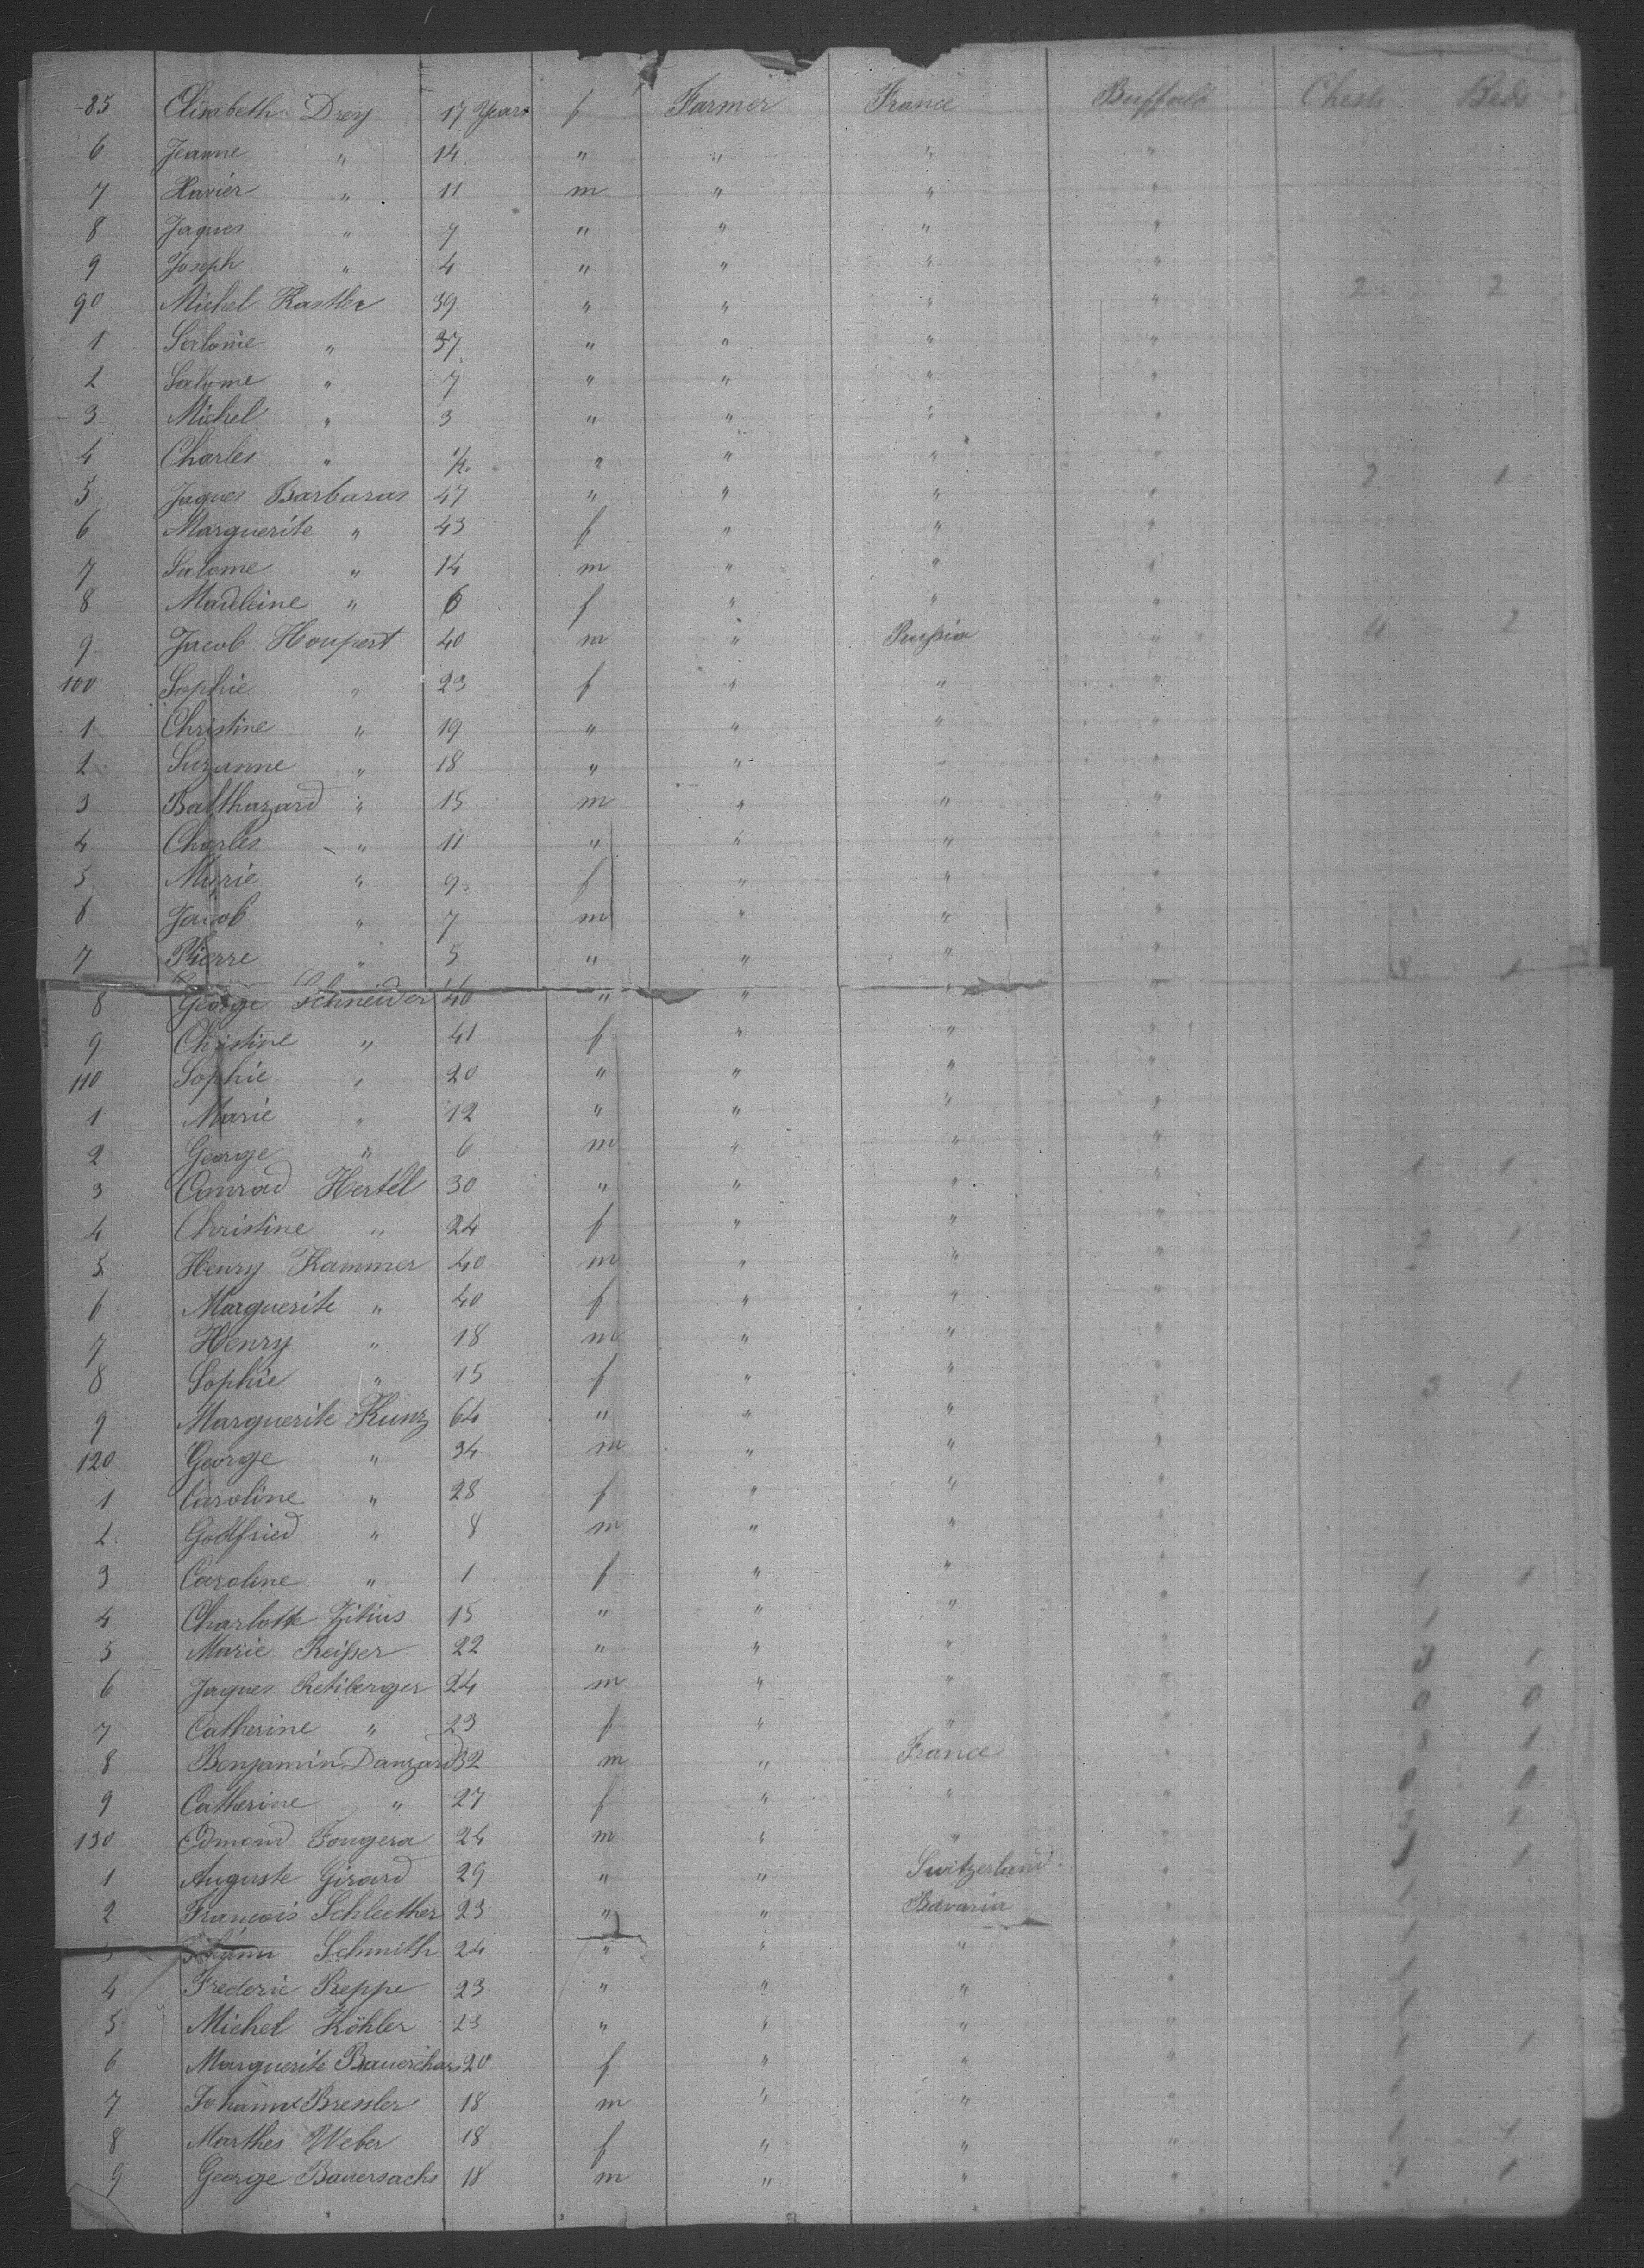 85 Elisabeth Drey 17 Years f Farmer France Buffalo Chests Beds
6 Jeanne " 14 " " " "
7 Xavier " 11 m " " "
8 Jaques " 7 " " " "
9 Joseph " 4 " " " "
90 Michel Kastler 39 " " " " 2 2
1 Salomé " 37 " " " "
2 Salome " 7 " " " "
3 Michel " 3 " " " "
4 Charles " 1/2 " " " "
5 Jaques Barbaras 47 " " " " 2 1
6 Marguerite " 43 f " " "
7 Salome " 14 m " " "
8 Madeleine " 6 f " " "
9 Jacob Houpert 40 m " Prussia " 4 2
100 Sophie " 23 f " " "
1 Christine " 19 " " " "
2 Suzanne " 18 " " " "
3 Balthazard " 15 m " " "
4 Charles " 11 " " " "
5 Marie " 9 f " " "
6 Jacob " 7 m " " "
7 Pierre " 5 " " " " 3 1
8 George Schneider 40 " " " "
9 Christine " 41 f " " "
110 Sophie " 20 " " " "
1 Marie " 12 " " " "
2 George " 6 m " " "
3 Conrad Hertel 30 " " " " 1 1
4 Christine " 24 f " " "
5 Henry Kammer 40 m " " " 2 1
6 Marguerite " 40 f " " "
7 Henry " 18 m " " "
8 Sophie " 15 f " " "
9 Marguerite Kunz 64 " " " " 3 1
120 George " 34 m " " "
1 Caroline " 28 f " " "
2 Godtfried " 8 m " " "
3 Caroline " 1 f " " " 1 1
4 Charlotte Zitius 15 " " " " 1
5 Marie Reißer 22 " " " " 3 1
6 Jaques Retiberger 24 m " " " 0 0
7 Catherine " 23 f " " "
8 Benjamin Danzard 32 m " France " 8 1
9 Catherine " 27 f " " " 0 0
130 Edmond Fougera 24 m " " " 3 1
1 Auguste Girard 29 " " Switzerland " 1 1
2 Francois Schleether 23 " " Bavaria " 1
3 Schmith 24 " " " " 1
4 Frederic Reppe 23 " " " " 1
5 Michel Köhler 23 " " " " 1
6 Marguerite 20 f " " " 1 1
7 Johann Bressler 18 m " " " 1
8 Marthes Weber 18 f " " " 1 1
9 George Bauersachs 18 m " " " 1 1